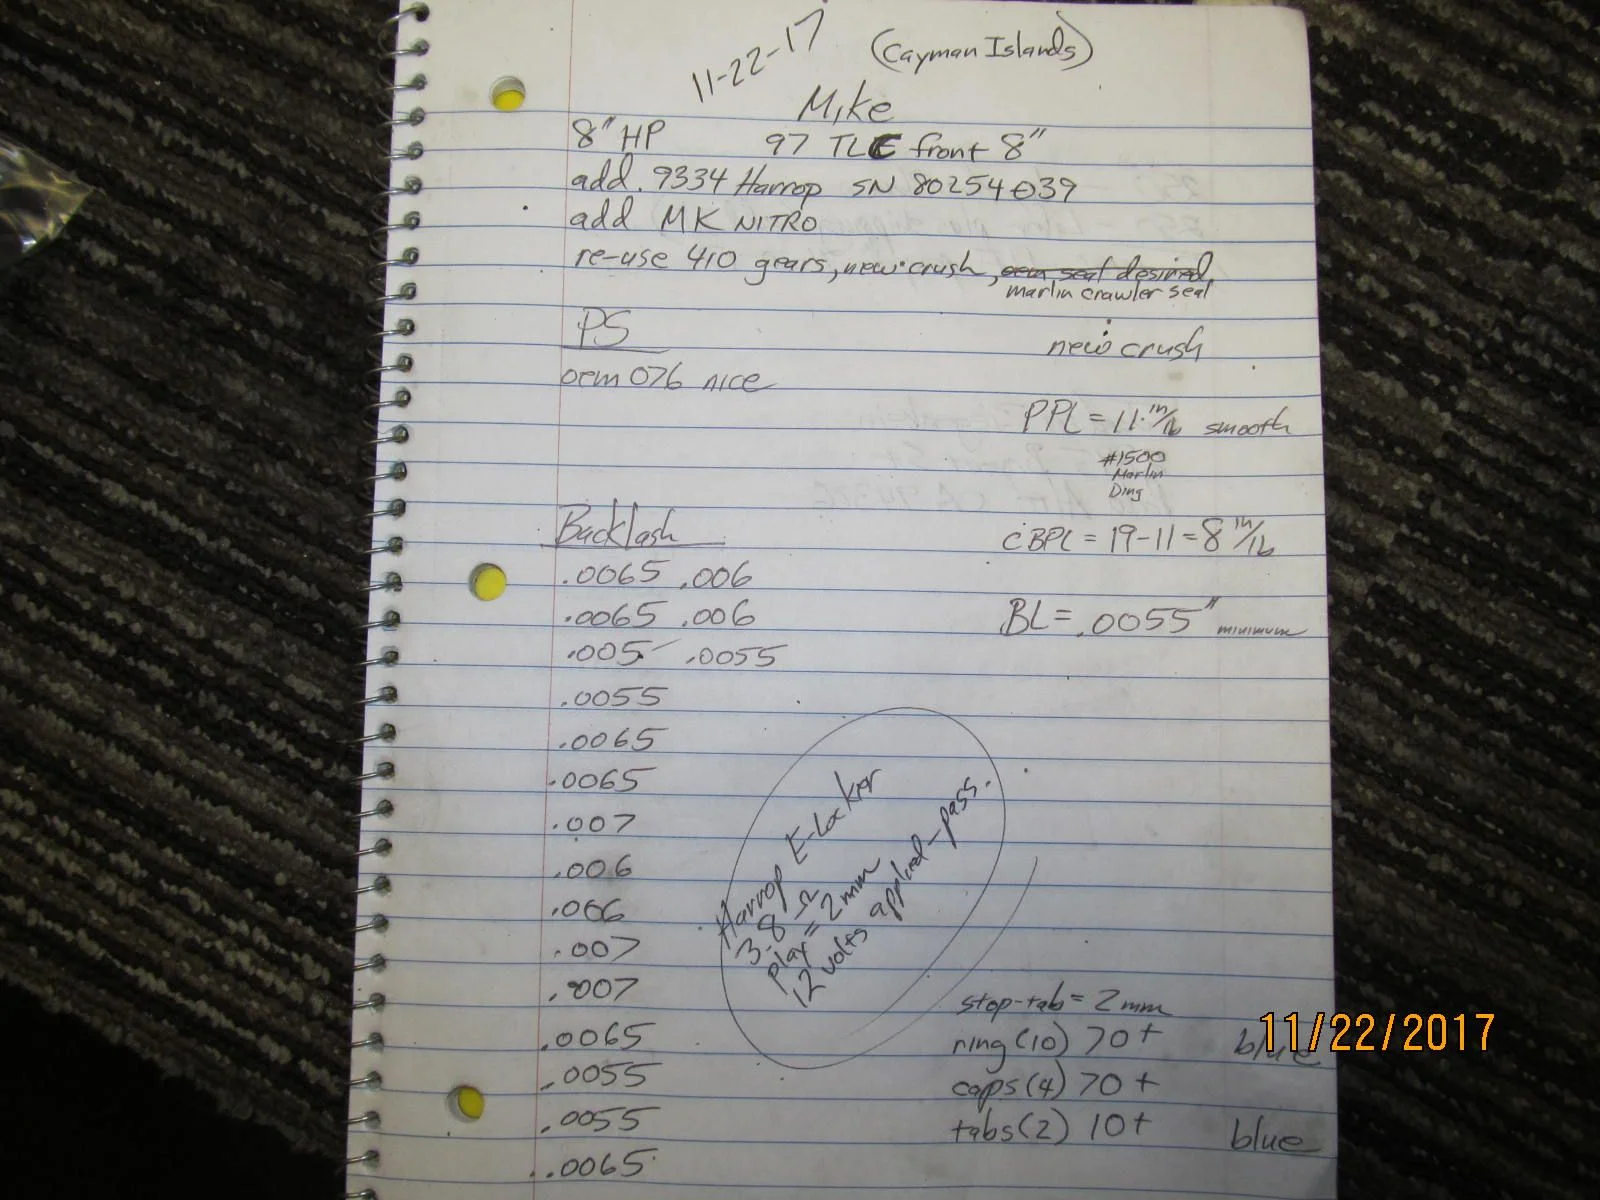 11-22-17 (Cayman Islands)
Mike
8" HP 97 TLC front 8"
add 9334 Harrop SN 80254039
add MK NITRO
re-use 410 gears, new crush, oem seal desired,
marlin crawler seal
PS new crush
oem 076 nice
PPL = 11 in/lb smooth
#1500
Marlin
Ding
Backlash CBPL = 19-11 = 8 in/lb
.0065 .006
.0065 .006 BL = .0055" minimum
.005 .0055
.0055
.0065
.0065
.007
.006
.006
.007
.007
.0065
.0055
.0055
.0065
Harrop E-Locker
3.8 Ω
play = 2mm
12 volts applied - pass.
stop-tab = 2mm
ring (10) 70+ blue
caps (4) 70+
tabs (2) 10+ blue
11/22/2017